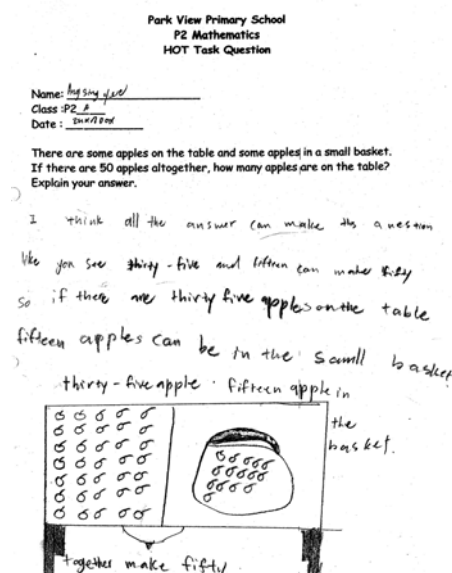 Park View Primary School
P2 Mathematics
HOT Task Question
Name:
Class :P2 A
Date :
There are some apples on the table and some apples in a small basket.
If there are 50 apples altogether, how many apples are on the table?
Explain your answer.
I think all the answer can make this question
like you see thirty-five and fifteen can make fifty
so if there are thirty five apples on the table
fifteen apples can be in the samll basket
thirty-five apple. fifteen apple in
the
basket.
together make fifty